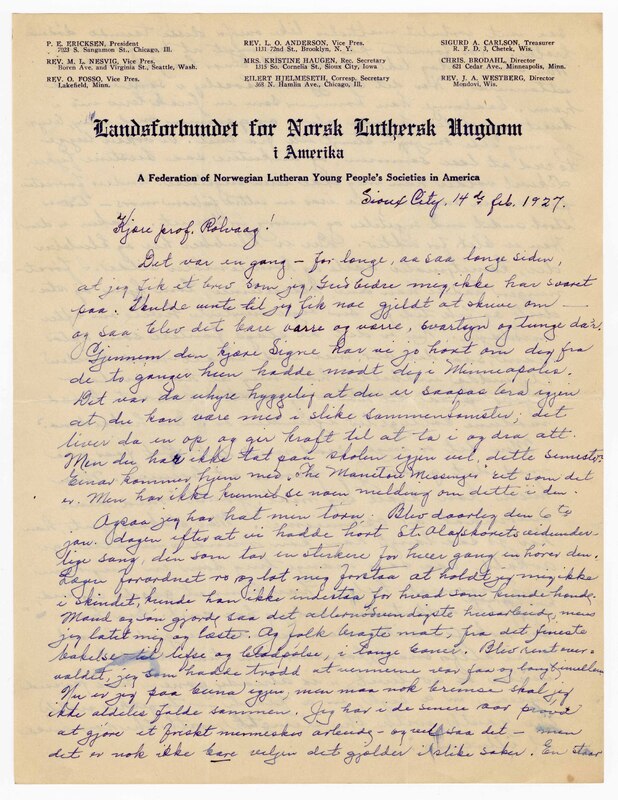 P. E. ERICKSEN, President
7023 S. Sangamon St., Chicago, Ill.
REV. M. L. NESVIG, Vice Pres.
Boren Ave. and Virginia St., Seattle, Wash.
REV. O. FOSSO, Vice Pres.
Lakefield, Minn.
REV. L. O. ANDERSON, Vice Pres.
1131 72nd St., Brooklyn, N. Y.
MRS. KRISTINE HAUGEN, Rec. Secretary
1315 So. Cornelia St., Sioux City, Iowa
EILERT HJELMESETH, Corresp. Secretary
368 N. Hamlin Ave., Chicago, Ill.
SIGURD A. CARLSON, Treasurer
R. F. D. 3, Chetek, Wis.
CHRIS. BRODAHL, Director
621 Cedar Ave., Minneapolis, Minn.
REV. J. A. WESTBERG, Director
Mondovi, Wis.
Landsforbundet for Norsk Luthersk Ungdom
i Amerika
A Federation of Norwegian Lutheran Young People's Societies in America
Sioux City, 14de feb. 1927.
Kjære prof. Rölvaag!
Det var en gang – for longe, aa saa longe siden,
at jeg fik et brev som jeg, Gud bedre mig, ikke har svaret
paa. Skulde vente til jeg fik noe gjildt at skrive om –
og saa blev det bare værre og værre, svartsyn og tunge da'r.
Gjennem den kjære Signe har vi jo hørt om dig fra
de to ganger hun hadde mødt dig i Minneapolis.
Det var da uhyre hyggelig at du er saapas bra igjen
at du kan være med i slike sammenkomster; det
liver da en op og ger kraft til at ta i og dra att.
Men du har ikke tat paa skolen igjen vel, dette semester?
Einar kommer hjem med "The Manitou Messenger" ret som det
er. Men har ikke kunnet se noen melding om dette i den.
Ogsaa jeg har hat min törn. Blev daarlig den 6te
jan. dagen efter at vi hadde hørt St. Olafskorets vidunder-
lige sang, den som tar en sterkere for hver gang en hører den.
Lægen forordnet ro og lot meg forstaa at holdt jeg mig ikke
i skindet, kunde han ikke indestaa for hvad som kunde hænde.
Mand og søn gjorde saa det allernødvendigste husarbeide, mens
jeg latet mig og læste. Og folk bragte mat, fra det fineste
bakelse til lefse og blodpølse, i lange baner. Blev rent over-
vældet, jeg som hadde trodd at vennerne var faa og langt imellem
Nu er jeg paa bena igjen, men maa nok bremse skal jeg
ikke aldeles falde sammen. Jeg har i de senere aar prøvd
at gjøre et friskt menneskes arbeide – og vel saa det – men
det er nok ikke bare viljen det gjælder i slike saker. En staar